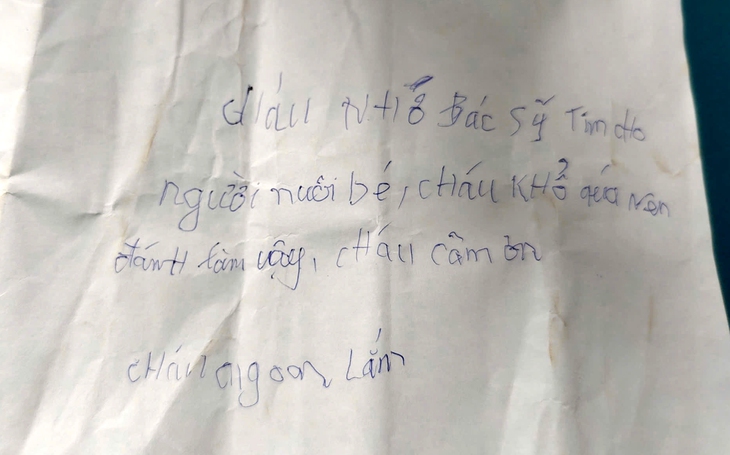 cHáu NHờ Bác sỹ Tìm cHo
người nuôi bé, cHáu KHổ quá nên
đánH làm vậy, cHáu cãm ơn
cHáu ngoan Lắm